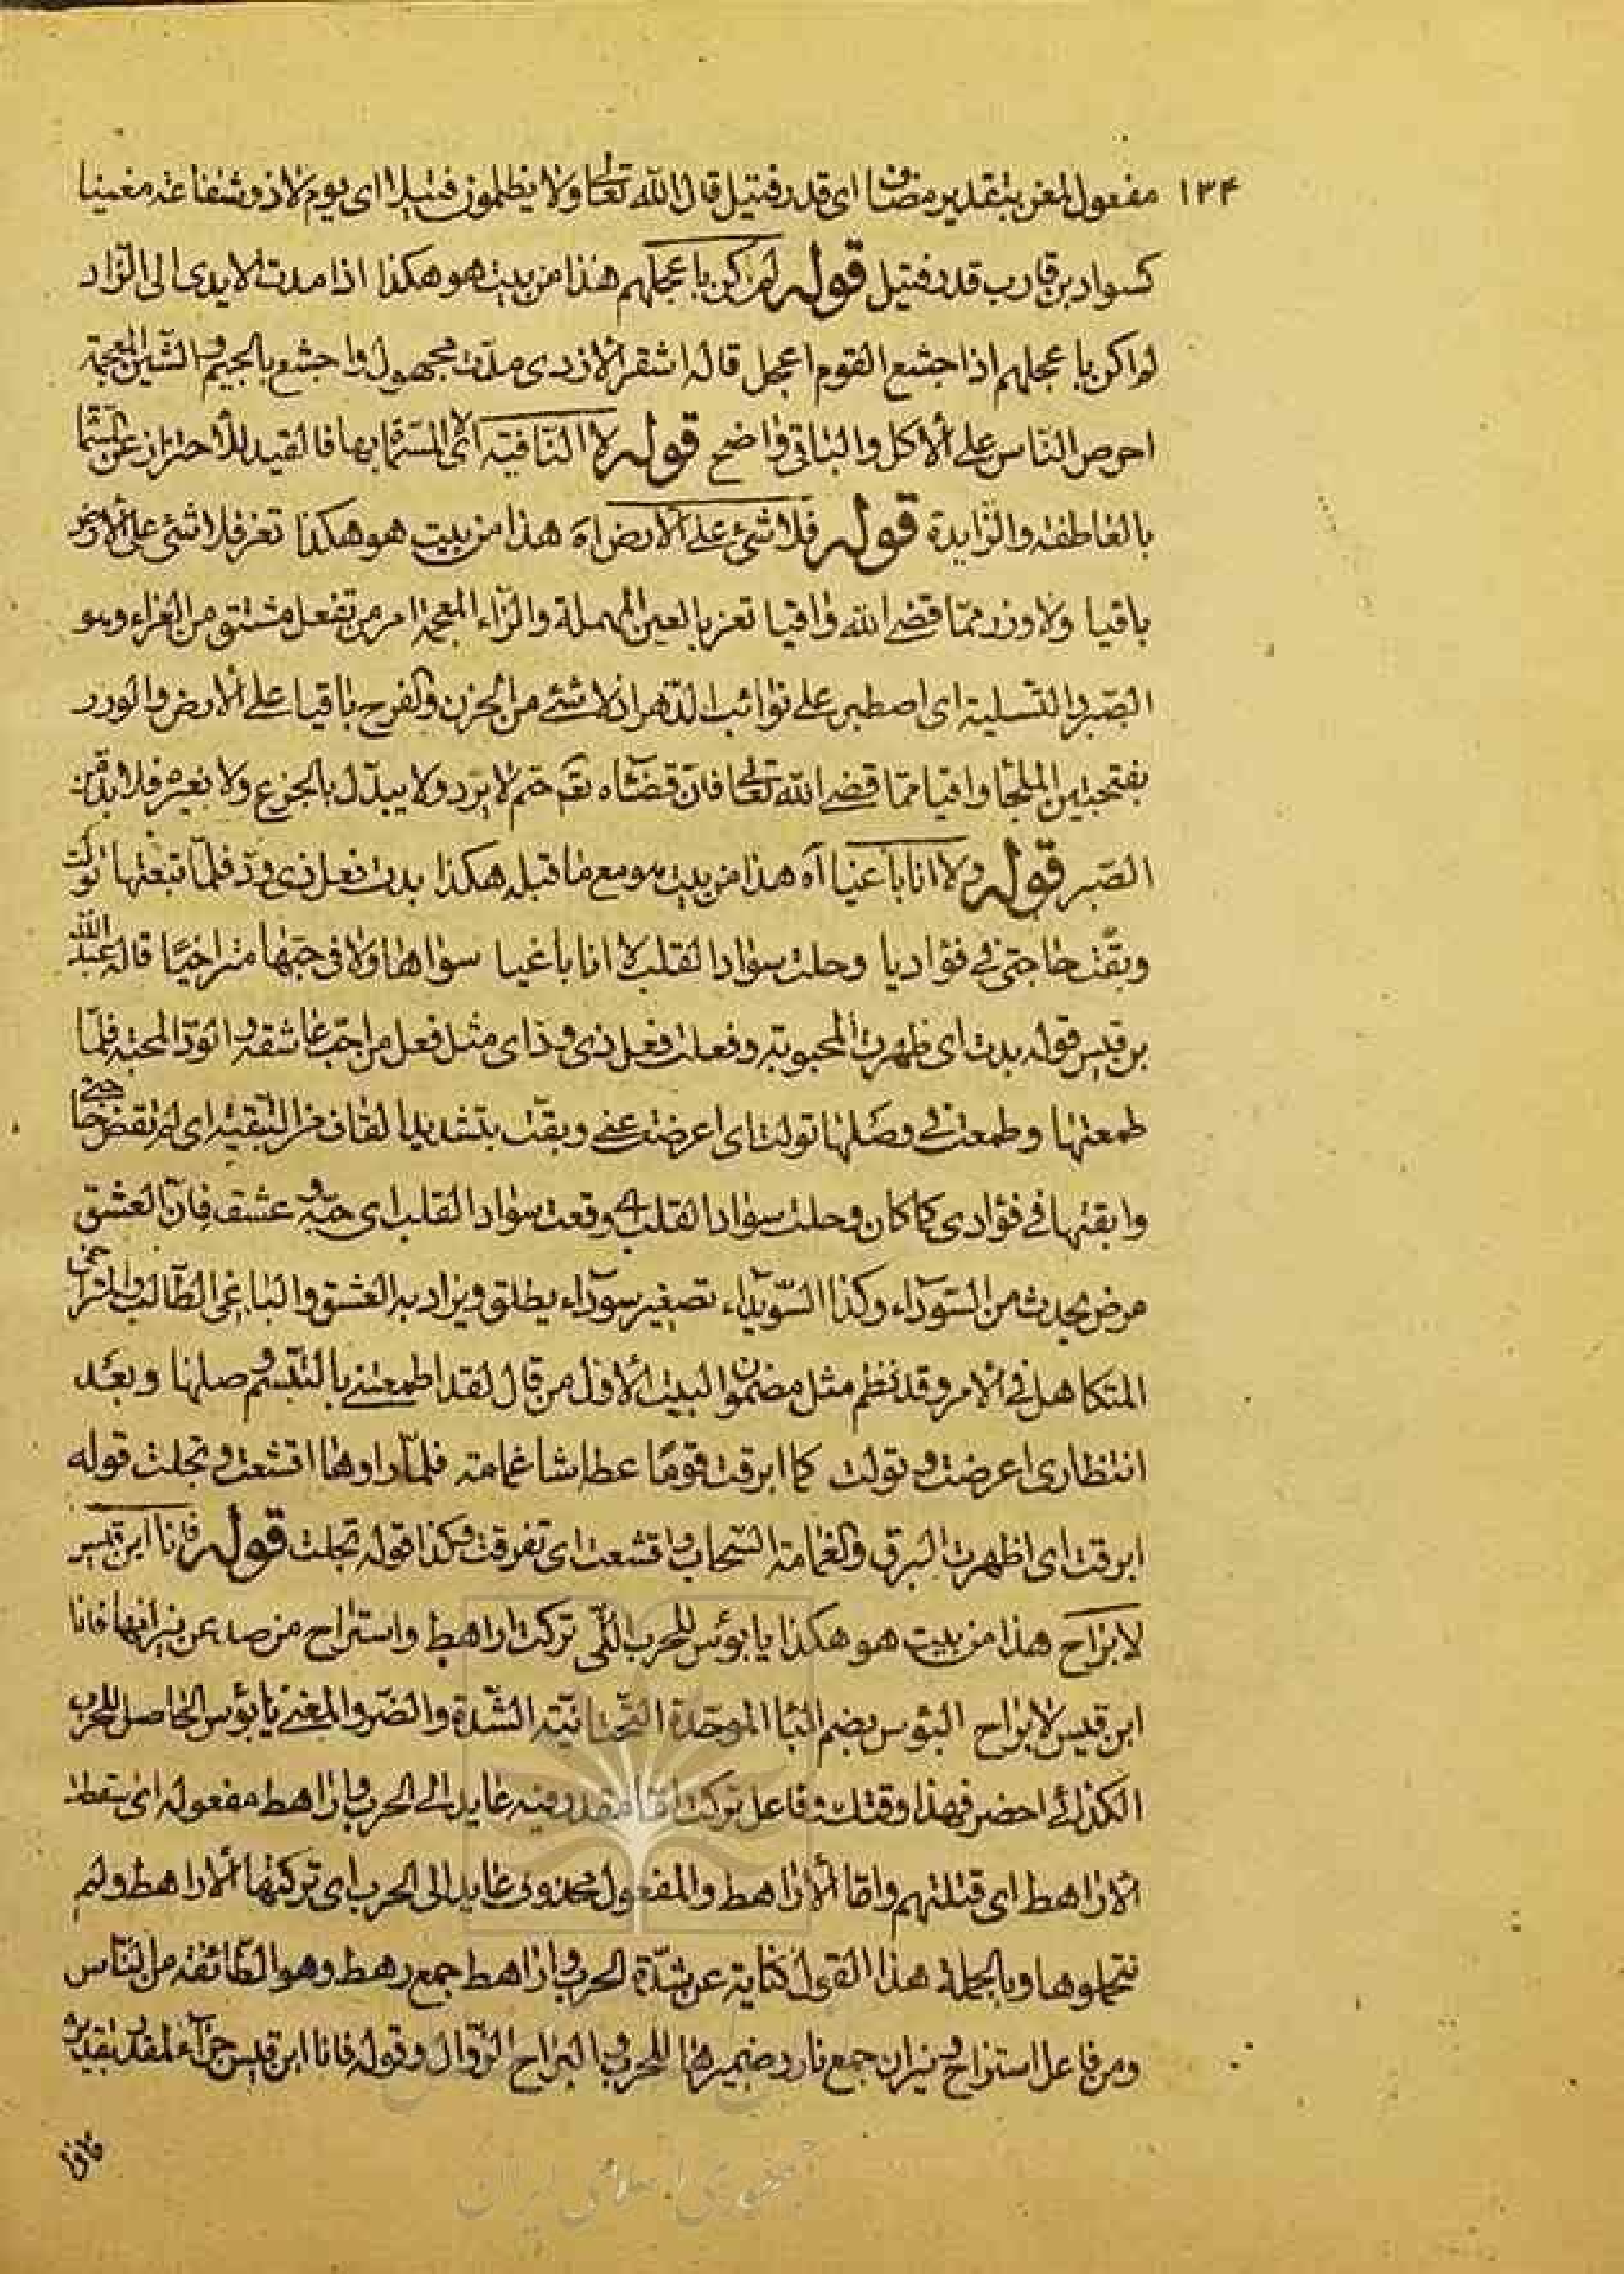 ١٣۴ مفعول لمغن بتقدير مضاف اى قدر فتيل قال الله تعالى ولا يظلمون فتيلا اى يوم لاذو شفاعة مغنيا
كسواد بن قارب قدر فتيل قوله لم اكن باعجلهم هذا من بيت هو هكذا اذا مدت الايدى الى الزاد
لم اكن باعجلهم اذا جشع القوم اعجل قاله اشنفر الازدى مدت مجهول واجشع بالجيم والشين المعجمة
احرص الناس على الاكل والباقى واضح قوله لا النافية اى لا المسماة بها فالقيد للاحتراز عن المسماة
بالعاطفة والزايدة قوله فلا شئ على الارض اه هذا من بيت هو هكذا تعز فلا شئ على الارض
باقيا ولا وزر مما قضى الله واقيا تعز بالعين المهملة والزاء المعجمة امر من تفعل مشتق من العزاء وهو
الصبر والتسلية اى اصطبر على نوائب الدهر اذ لا شئ من الحزن والفرح باقيا على الارض والوزر
بفتحتين الملجأ واقيا مما قضى الله تعالى فان قضائه تعم حتم لا يرد ولا يبدل بالجزع ولا بغيره فلا بد من
الصبر قوله ولا انا باغيا اه هذا من بيت هو مع ما قبله هكذا بدت فعل ذى ود فلما تبعتها تولت
وبقت حاجتى فى فؤاديا وحلت سواد القلب لا انا باغيا سواها ولا فى حبها متراخيا قاله عبد الله
بن قيس قوله بدت اى ظهرت المحبوبة وفعلت فعل ذى ود اى مثل فعل من احب عاشقه والود المحبة فلما
طمعتها وطمعت فى وصلها تولت اى اعرضت عنى وبقت بتشديد القاف من التبقية اى لم تقض حاجتى
وابقتها فى فؤادى كما كان وحلت سواد القلب اى وقعت سواد القلب اى حبه وعشقه فان العشق
مرض يحدث من السوداء وكذا السويداء تصغير سوداء يطلق ويراد به العشق والباغى الطالب والمتراخى
المتكاهل فى الامر وقد نظم مثل مضمون البيت الاول من قال لقد اطمعتنى بالتبسم وصلها وبعد
انتظارى اعرضت وتولت كما ابرقت قوما عطاشا غمامة فلما راوها اقشعت وتجلت قوله
ابرقت اى اظهرت البرق والغمامة السحاب واقشعت اى تفرقت وكذا قوله تجلت قوله فانا ابن قيس
لا براح هذا من بيت هو هكذا يا بؤس للحرب التى تركت اراهط واستراح من صد عن نيرانها فانا
ابن قيس لا براح البؤس بضم الباء الموحدة التحتانية الشدة والضر والمعنى يا بؤس الحاصل للحرب
الكذائى احضر فهذا وقتك وفاعل تركت اما مقدر فيه عايد الى الحرب واراهط مفعوله اى سقط
الاراهط اى قتلتهم واما الاراهط والمفعول محذوف عايد الى الحرب اى تركتها الاراهط ولم
يتحملوها وبالجملة هذا القول كناية عن شدة الحرب واراهط جمع رهط وهو الطائفة من الناس
ومن فاعل استراح ونيران جمع نار وضميرها للحرب والبراح الزوال وقوله فانا ابن قيس جزاء لمقدر تقديره
فانا